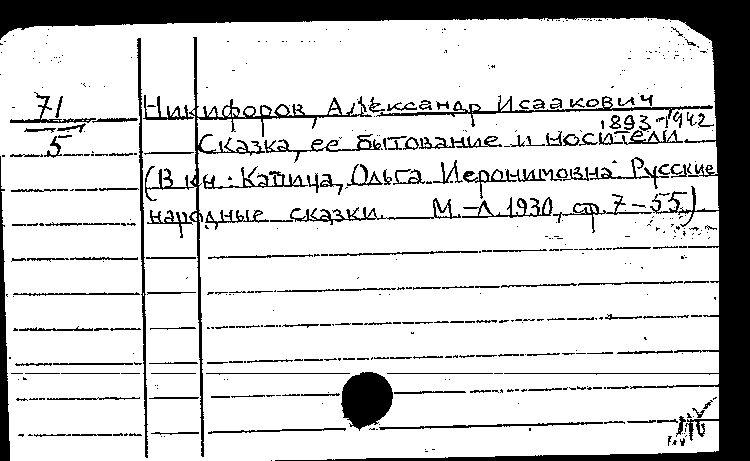 71
5
Никифоров, Александр Исаакович
1893-1942
Сказка, ее бытование и носители.
(В кн.: Капица, Ольга Иеронимовна. Русские
народные сказки. М.-Л. 1930, стр. 7-55)